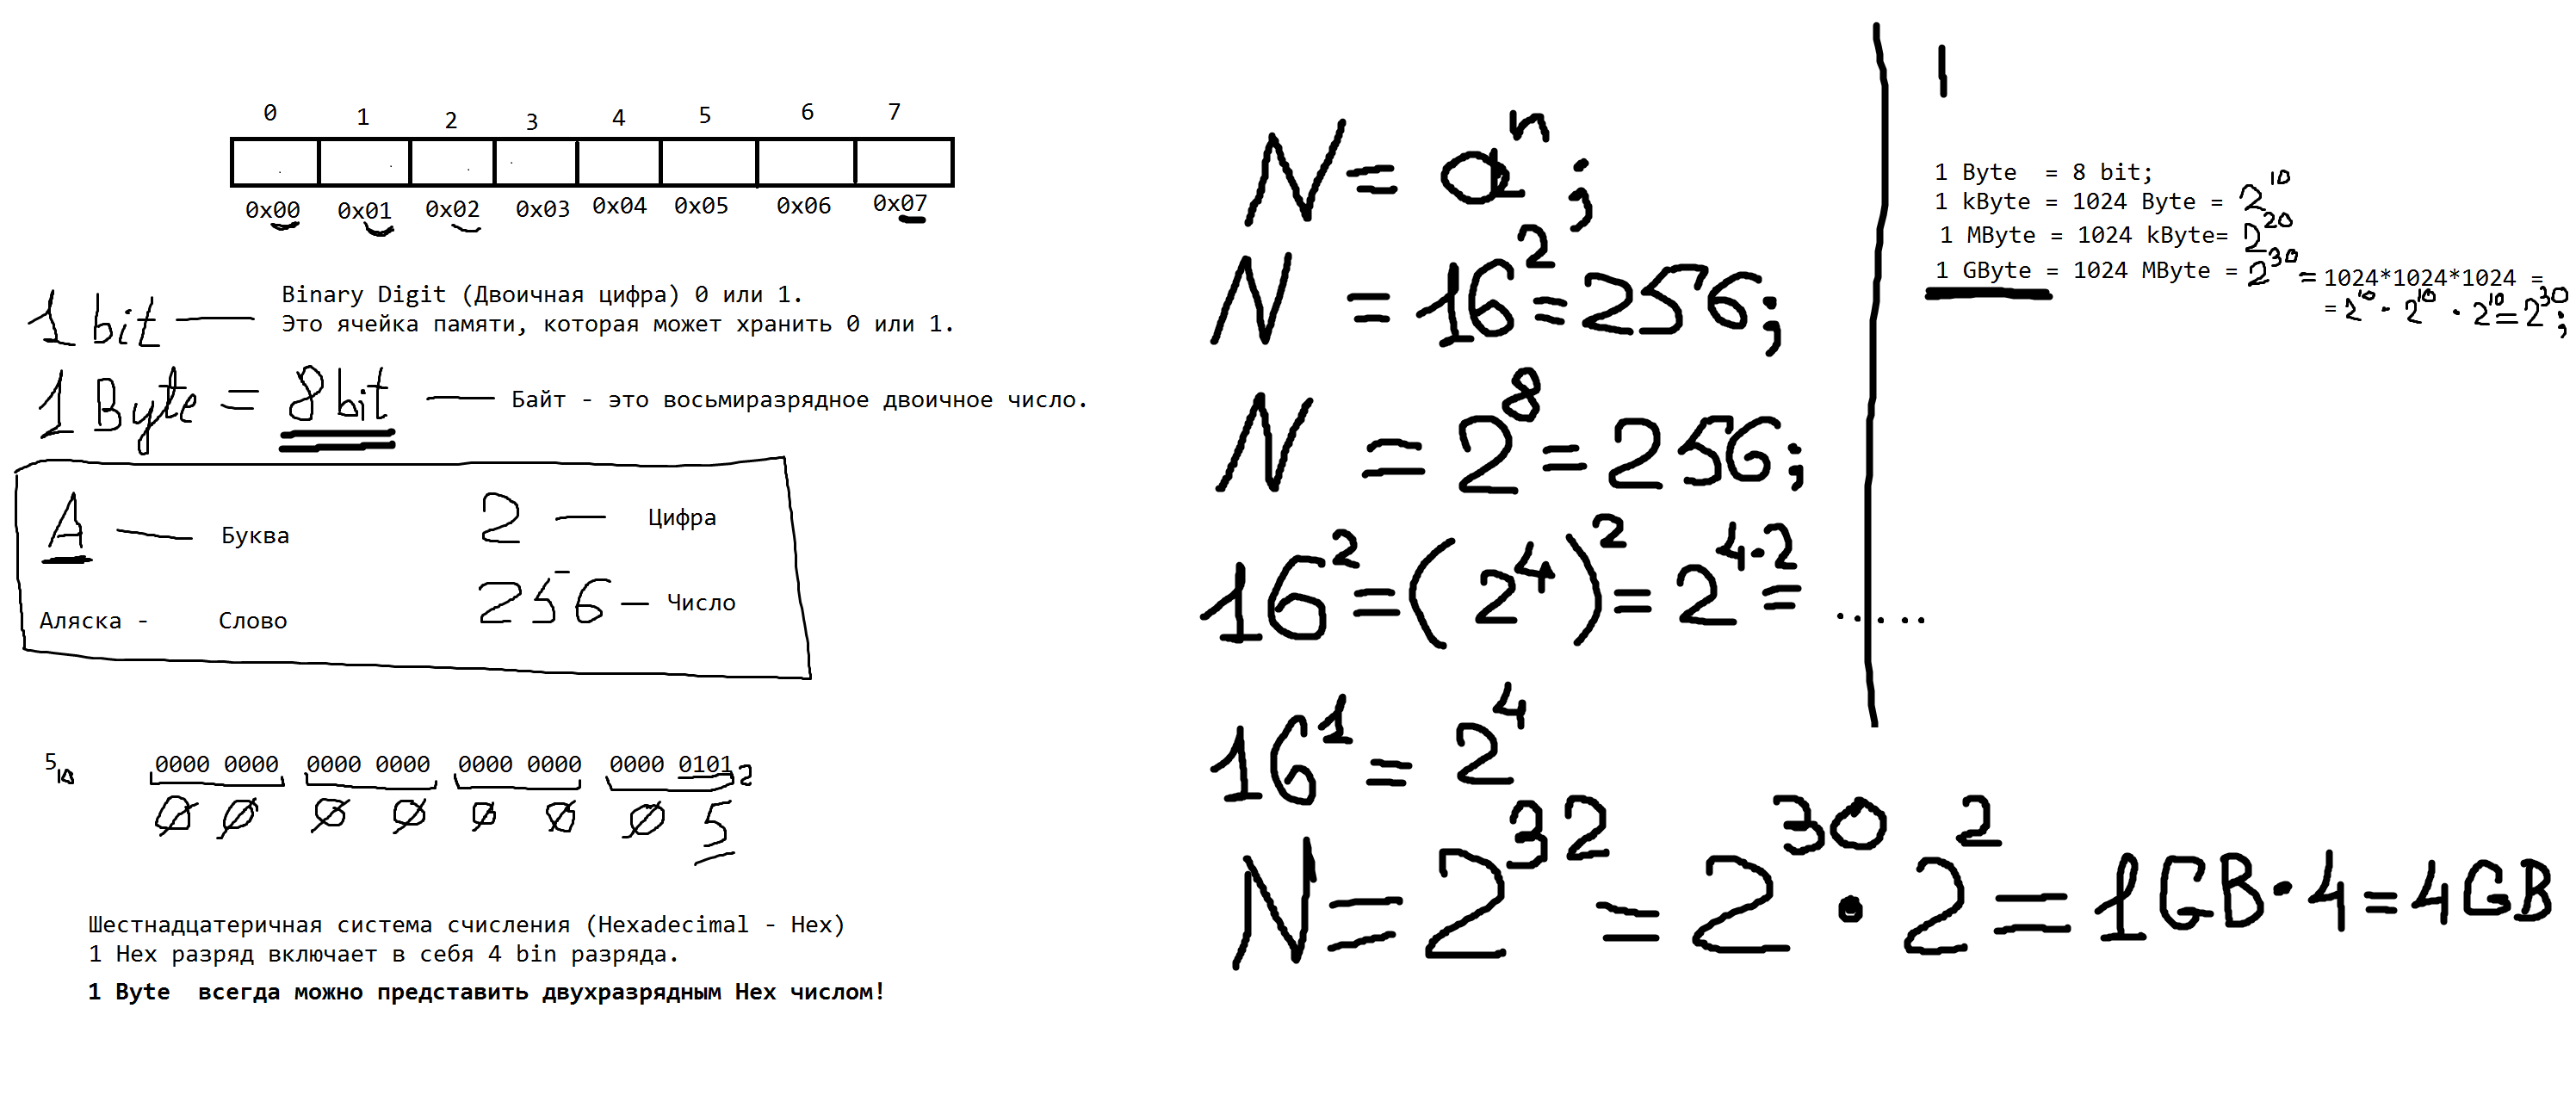 0 1 2 3 4 5 6 7
0x00 0x01 0x02 0x03 0x04 0x05 0x06 0x07
1 bit — Binary Digit (Двоичная цифра) 0 или 1.
Это ячейка памяти, которая может хранить 0 или 1.
1 Byte = 8 bit — Байт - это восьмиразрядное двоичное число.
А — Буква
2 — Цифра
Аляска - Слово
256 — Число
5₁₀ 0000 0000 0000 0000 0000 0000 0000 0101₂
0 0 0 0 0 0 0 5
Шестнадцатеричная система счисления (Hexadecimal - Hex)
1 Hex разряд включает в себя 4 bin разряда.
1 Byte всегда можно представить двухразрядным Hex числом!
N = aⁿ;
N = 16² = 256;
N = 2⁸ = 256;
16² = (2⁴)² = 2⁴·² = .....
16¹ = 2⁴
N = 2³² = 2³⁰ · 2² = 1GB · 4 = 4GB
1
1 Byte = 8 bit;
1 kByte = 1024 Byte = 2¹⁰
1 MByte = 1024 kByte= 2²⁰
1 GByte = 1024 MByte = 2³⁰ = 1024*1024*1024 =
= 2¹⁰ · 2¹⁰ · 2¹⁰ = 2³⁰;